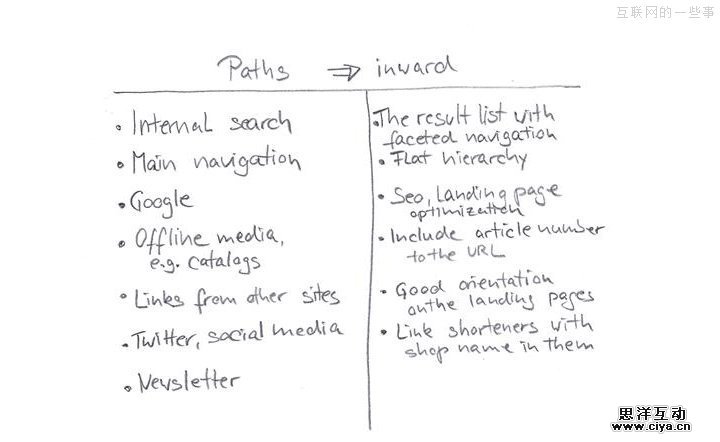 互联网的一些事
Paths ⇒ inward
• Internal search
• Main navigation
• Google
• Offline media,
e.g. catalogs
• Links from other sites
• Twitter, social media
• Newsletter
• The result list with
faceted navigation
• Flat hierarchy
• Seo, Landing page
optimization
• Include article number
to the URL
• Good orientation
on the landing pages
• Link shorteners with
shop name in them
思洋互动
www.ciya.cn